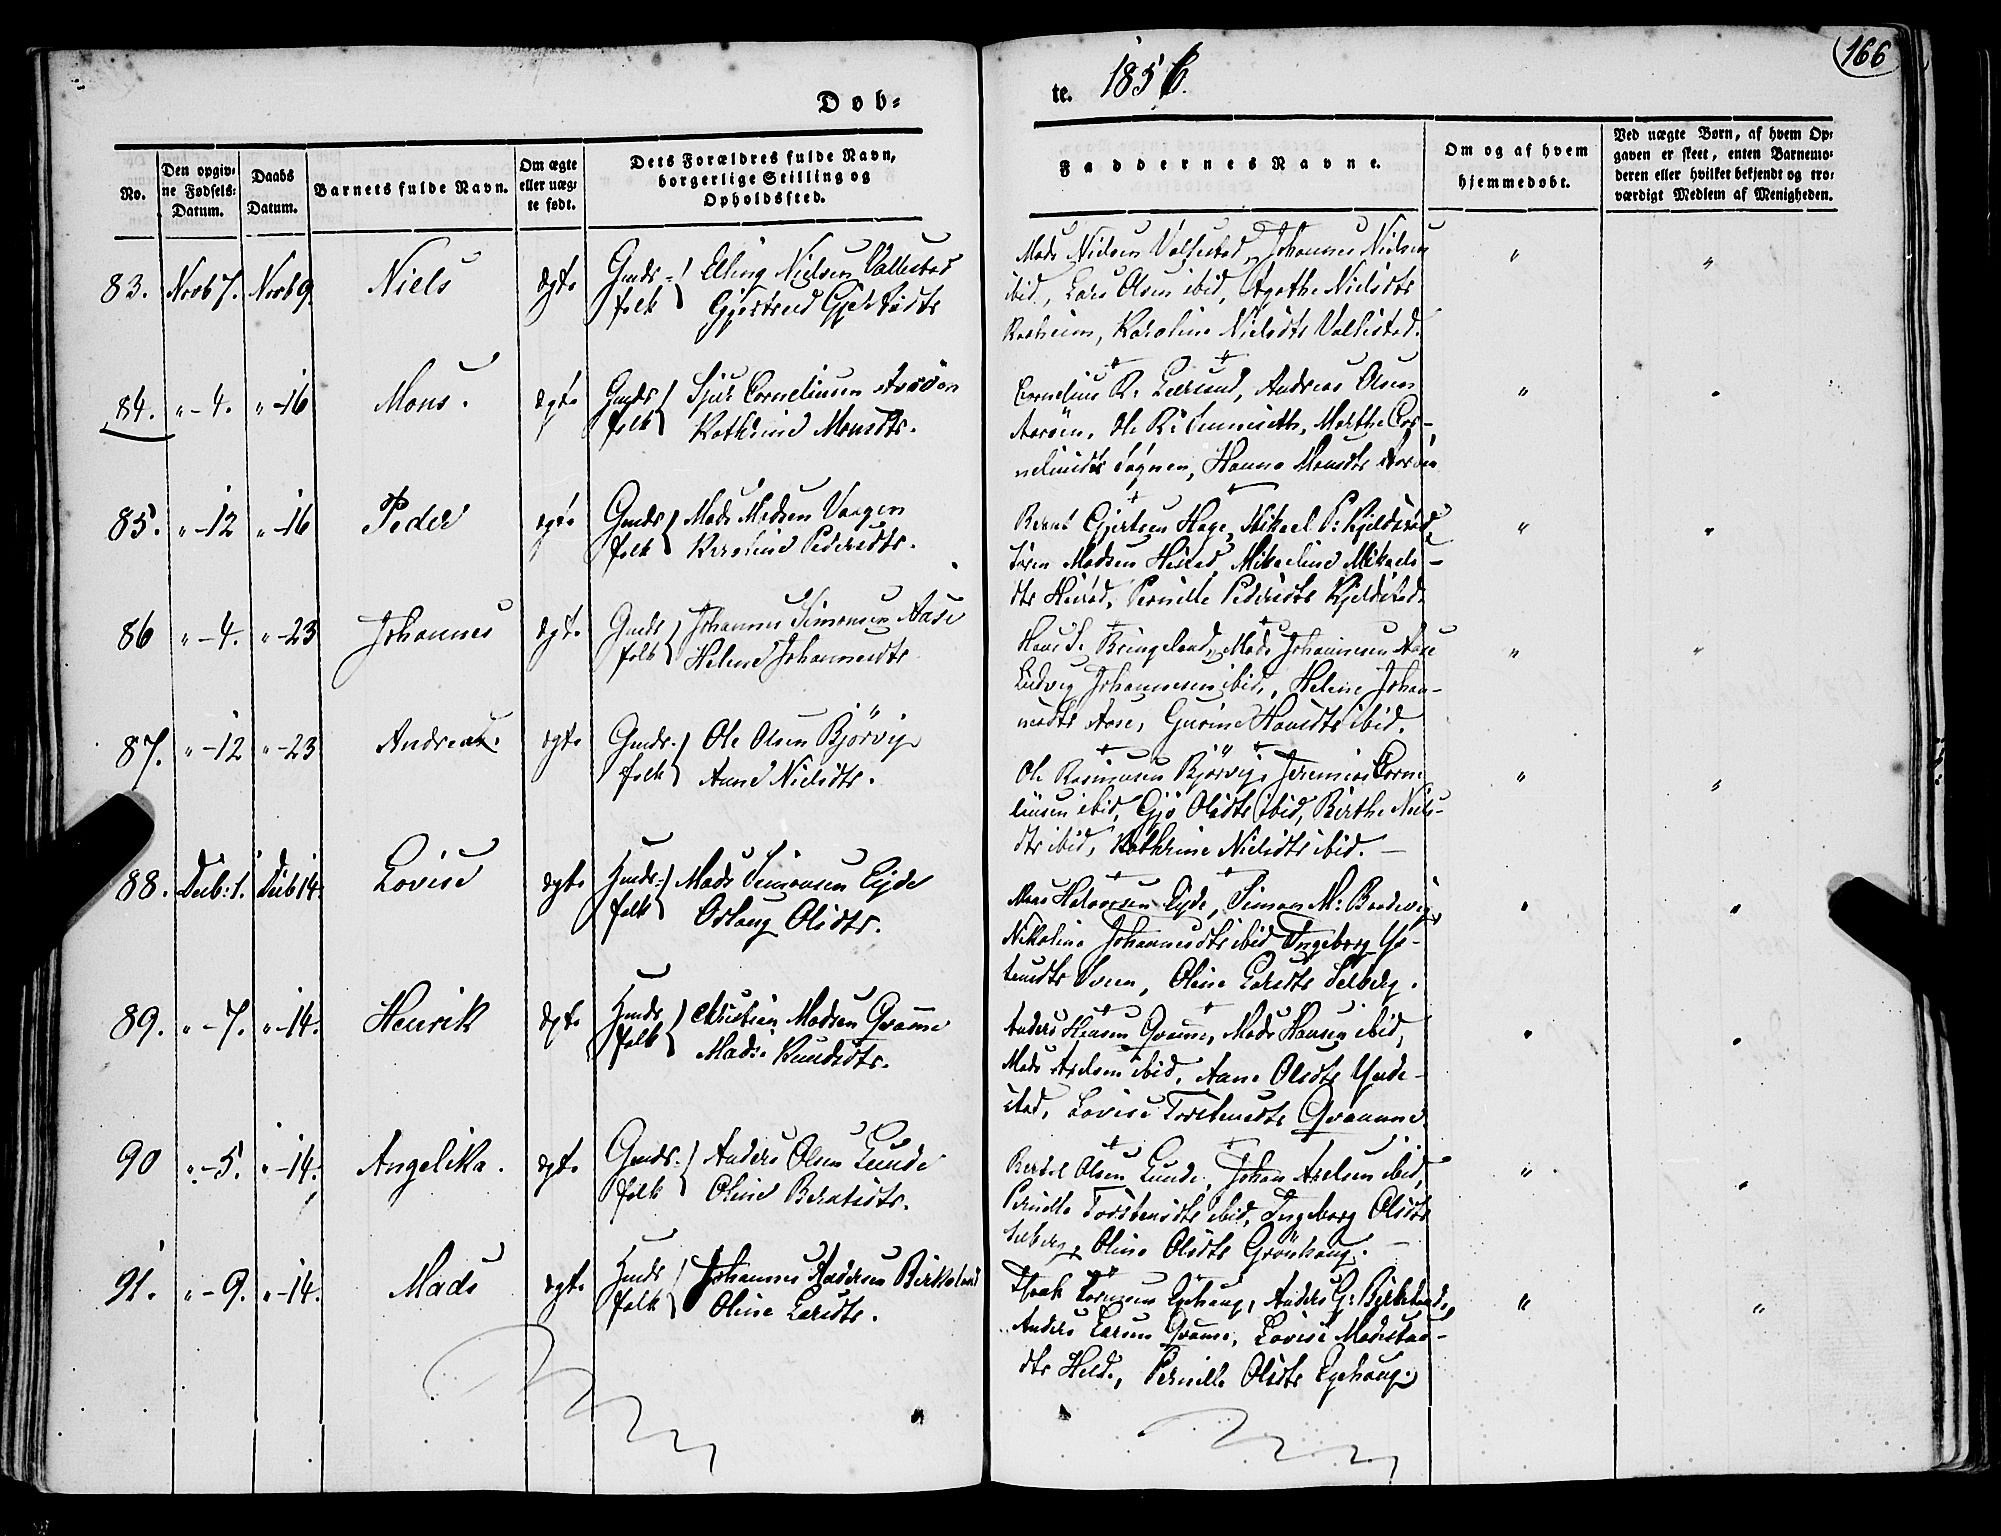 166
Døb=
te. 1856.
No.
Den opgiv-
ne Fødsels-
Datum.
Daabs
Datum.
Barnets fulde Navn.
Om ægte
eller uæg-
te født.
Dets Forældres fulde Navn,
borgerlige Stilling og
Opholdssted.
Faddernes Navne.
Om og af hvem
hjemmedøbt.
Ved uægte Børn, af hvem Op-
gaven er skeet, enten Barnemo-
deren eller hvilket bekjendt og tro-
værdigt Medlem af Menigheden.
83. Novb 7. Novb 9 Niels ægte Gmds- folk Elling Nielsen Vallestad
Gjertrud
Mads Nielsen Vallestad, Johannes Nielsen
ibid, Lars Olsen ibid, Agathe Nielsdtr
Karoline Nielsdtr Vallestad.
84. " - 4. " - 16 Mons. ægte Gmds folk Sjur Corneliusen Aarøen
Kathrine Monsdtr.
Cornelius R. Andreas Olsen
Aarøen, Ole R. Marthe Cor-
neliusdtr Hanna Monsdtr Aarøen
85. " - 12 " - 16 Peder ægte Gmds folk Mads Madsen Vaagen
Karoline Pedersdtr.
Bernt Gjertsen Hage, Mikael P: Kjeldstad,
Søren Madsen Hestad, Mikaeline Mikaels-
dtr Hestad, Pernille Pedersdtr Kjeldstad.
86 " - 4. " - 23 Johannes ægte Gmds folk Johannes Simonsen Aase
Helene Johannesdtr
Hans S. Bringeland, Mads Johannesen Aase
Ludvig Johannesen ibid, Helene Johan-
nesdtr Aase, Gurine Hansdtr ibid.
87. " - 12 " - 23 Andreas. ægte Gmds. folk Ole Olsen Bjørvig
Anne Nielsdtr.
Ole Rasmusen Bjørvig, Jeremias Corne
liusen ibid, Gjø Olsdtr ibid, Birthe Niels-
dtr ibid, Kathrine Nielsdtr ibid. -
88. Decb: 1. Decb 14. Lovise ægte Hmds- folk Mads Simonsen Eyde
Oslaug Olsdtr.
Mons Halvorsen Eyde, Simon M:
Nikoline Johannesdtr ibid Ingeborg
Sveen, Oline Larsdtr Selberg.
89. " - 7. " - 14. Henrik ægte Hmds folk Christian Madsen Qvamme
Mads: Knudsdtr.
Anders Hansen Qvamme, Mads Hansen ibid,
Mads Axelsen ibid. Anne Olsdtr Ynde-
stad, Lovise Torstensdtr Qvamme.
90 " - 5. " - 14. Angelika. ægte Gmds. folk Anders Olsen Lunde
Oline Berntsdtr.
Bertel Olsen Lunde, Johan Axelsen ibid,
Pernille Torstensdtr ibid, Ingeborg Olsdtr
Selberg, Oline Olsdtr Grønhaug. -
91. " - 9. " - 14. Mads ægte Hmds folk Johannes Andersen Birkeland
Oline Larsdtr.
Isak Sørensen Egehaug, Anders G: Birkeland,
Anders Larsen Qvamme, Lovise
dtr Pernille Olsdtr Egehaug.